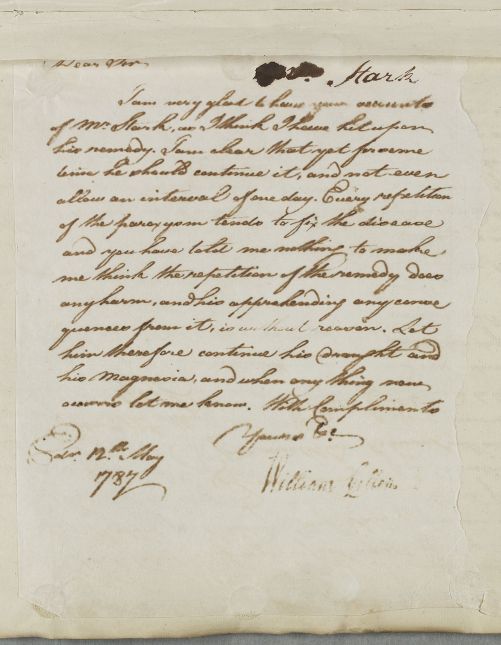 Dear Sir
Mr. Stark
I am very glad to have your accounts
of Mr. Stark, as I think I have hit upon
his remedy. I am clear that yet for some
time he should continue it, and not even
allow an interval of one day. Every repetition
of the paroxysm tends to fix the disease
and you have told me nothing to make
me think the repetition of the remedy does
any harm, and his apprehending any conse
quences from it, is without reason. Let
him therefore continue his draught and
his Magnesia, and when any thing new
occurrs let me know. With Compliments
Yours &c
Edinr. 12th. May
1787
William Cullen